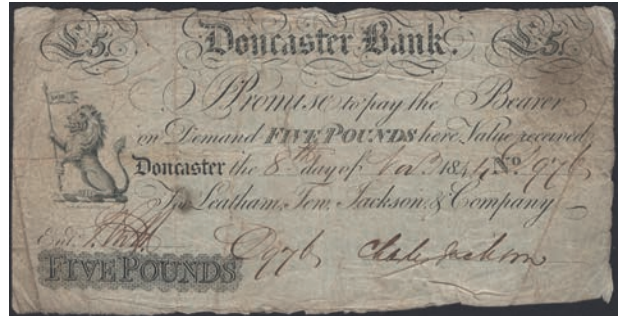 £5 Doncaster Bank. £5
I Promise to pay the Bearer
on Demand FIVE POUNDS here Value received
Doncaster the 8th day of Nov. 184 No.
For Leatham, Tew, Jackson, & Company
Entd. Charles Jackson
FIVE POUNDS